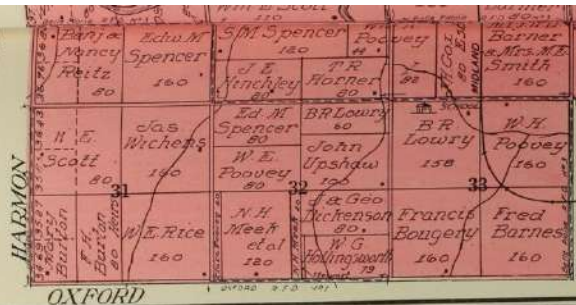 Wm E Scott
120
Benj &
Nancy
Reitz
80
Edw. M
Spencer
160
S.M Spencer
120
Poovey
44
J E
Hinchley
80
T R
Horner
80
82
80
MIDLAND
Borner
& Mrs. M.E.
Smith
160
H E.
Scott
80
Jas
Wichens
160
Ed M
Spencer
80
W. E.
Poovey
80
B R Lowry
60
John
Upshaw
100
SCHOOL
B R
Lowry
158
W. H.
Poovey
160
31
32
33
HARMON
Mary
Burton
F. H.
Burton
80
W. E. Rice
160
N. H.
Meek
et al
120
J & Geo
Dickenson
80
W G
Hollingsworth
79
Francis
Bougery
160
Fred
Barnes
160
OXFORD
OXFORD R F D